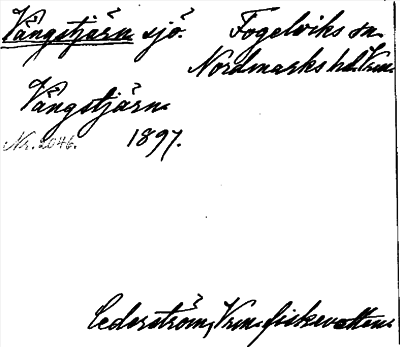 Vångstjärn sjö. Fogelviks sn.
Nordmarks hd. Vrm.
Vångstjärn.
Nr. 2046. 1897.
Cederström, Vrm. fiskevatten.